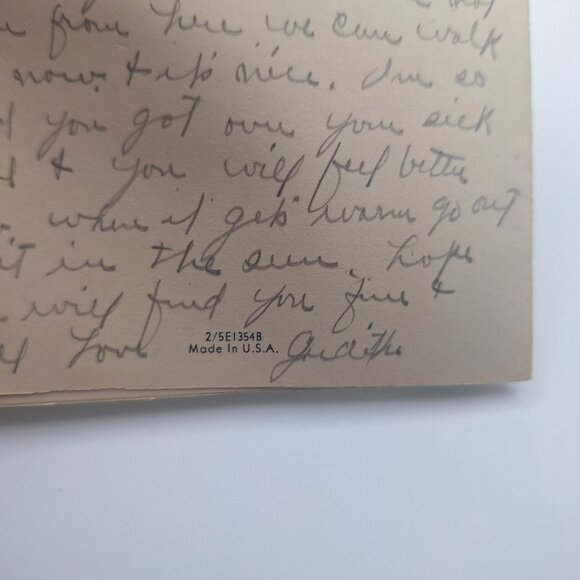 from here we can walk
now & it's nice. I'm so
you got over your sick
& you will feel better
when it gets warm go out
it in the sun. hope
will find you fine &
Love
2/5E1354B
Made In U.S.A.